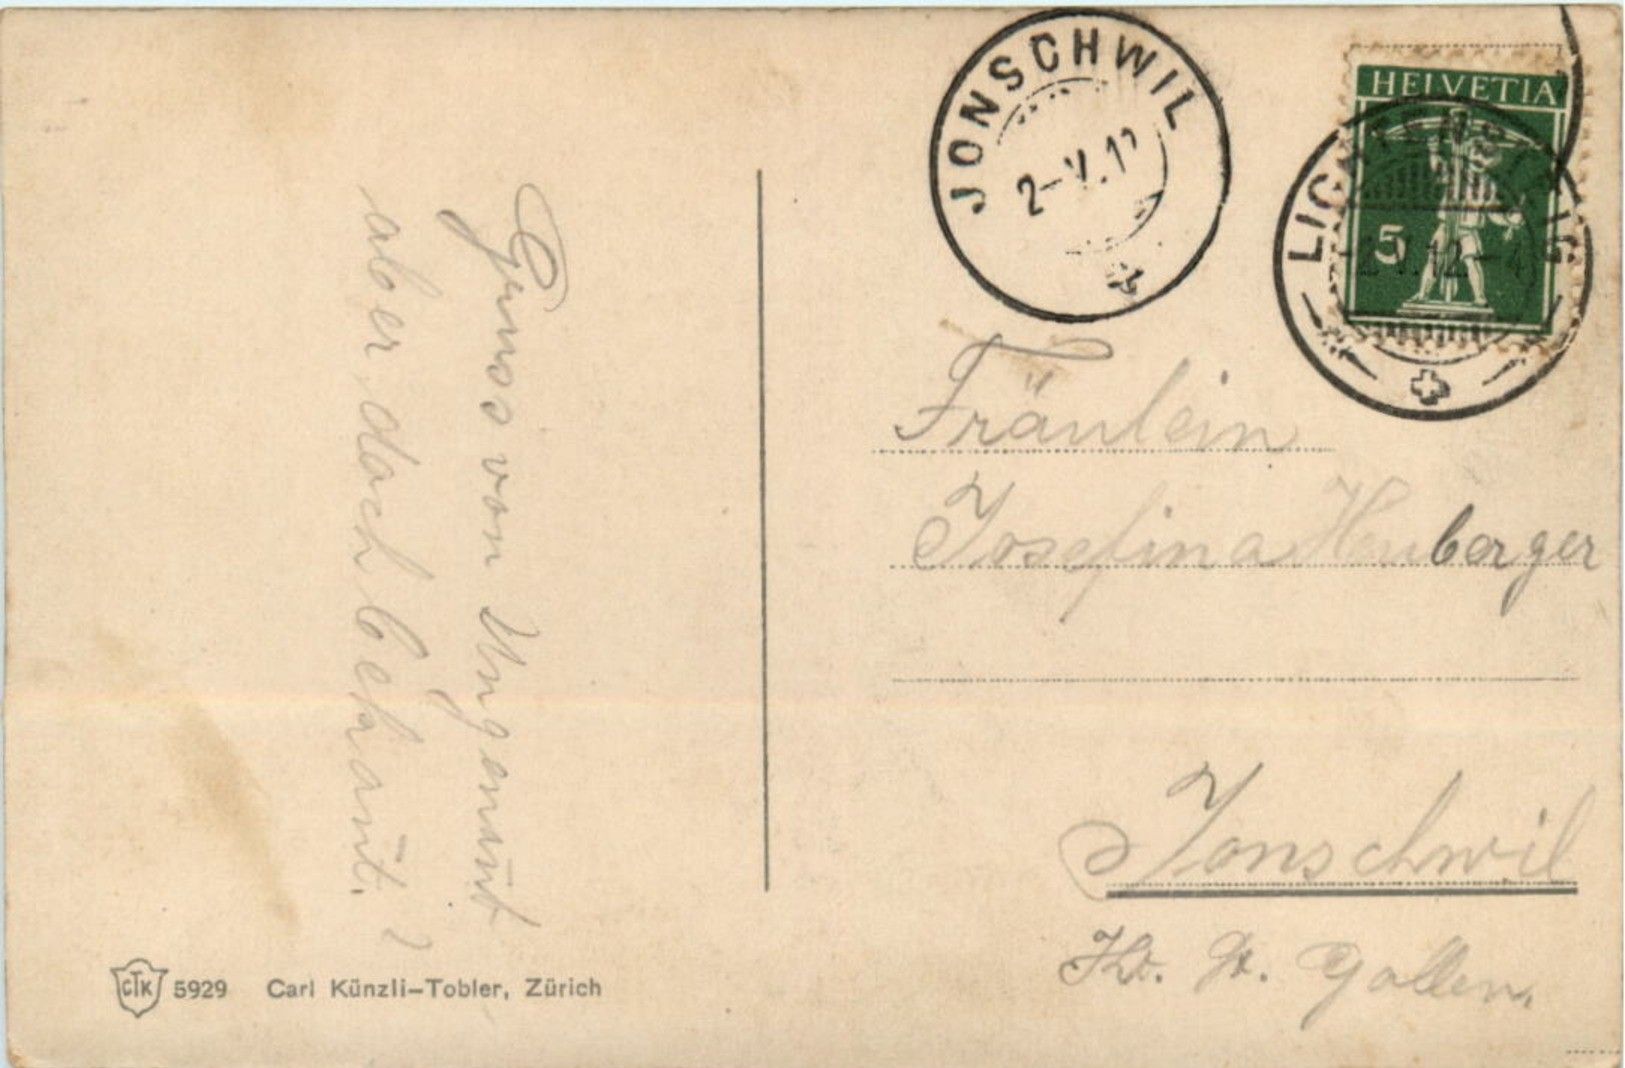 Gruss von Ungenant
aber doch bekan̄t.
JONSCHWIL
2-V.12
HELVETIA
5
LICHTENSTEIG
2.V.12.-4
Fräulein
Josefina Heuberger
Jonschwil
Kt. St. Gallen.
CTK 5929 Carl Künzli-Tobler, Zürich